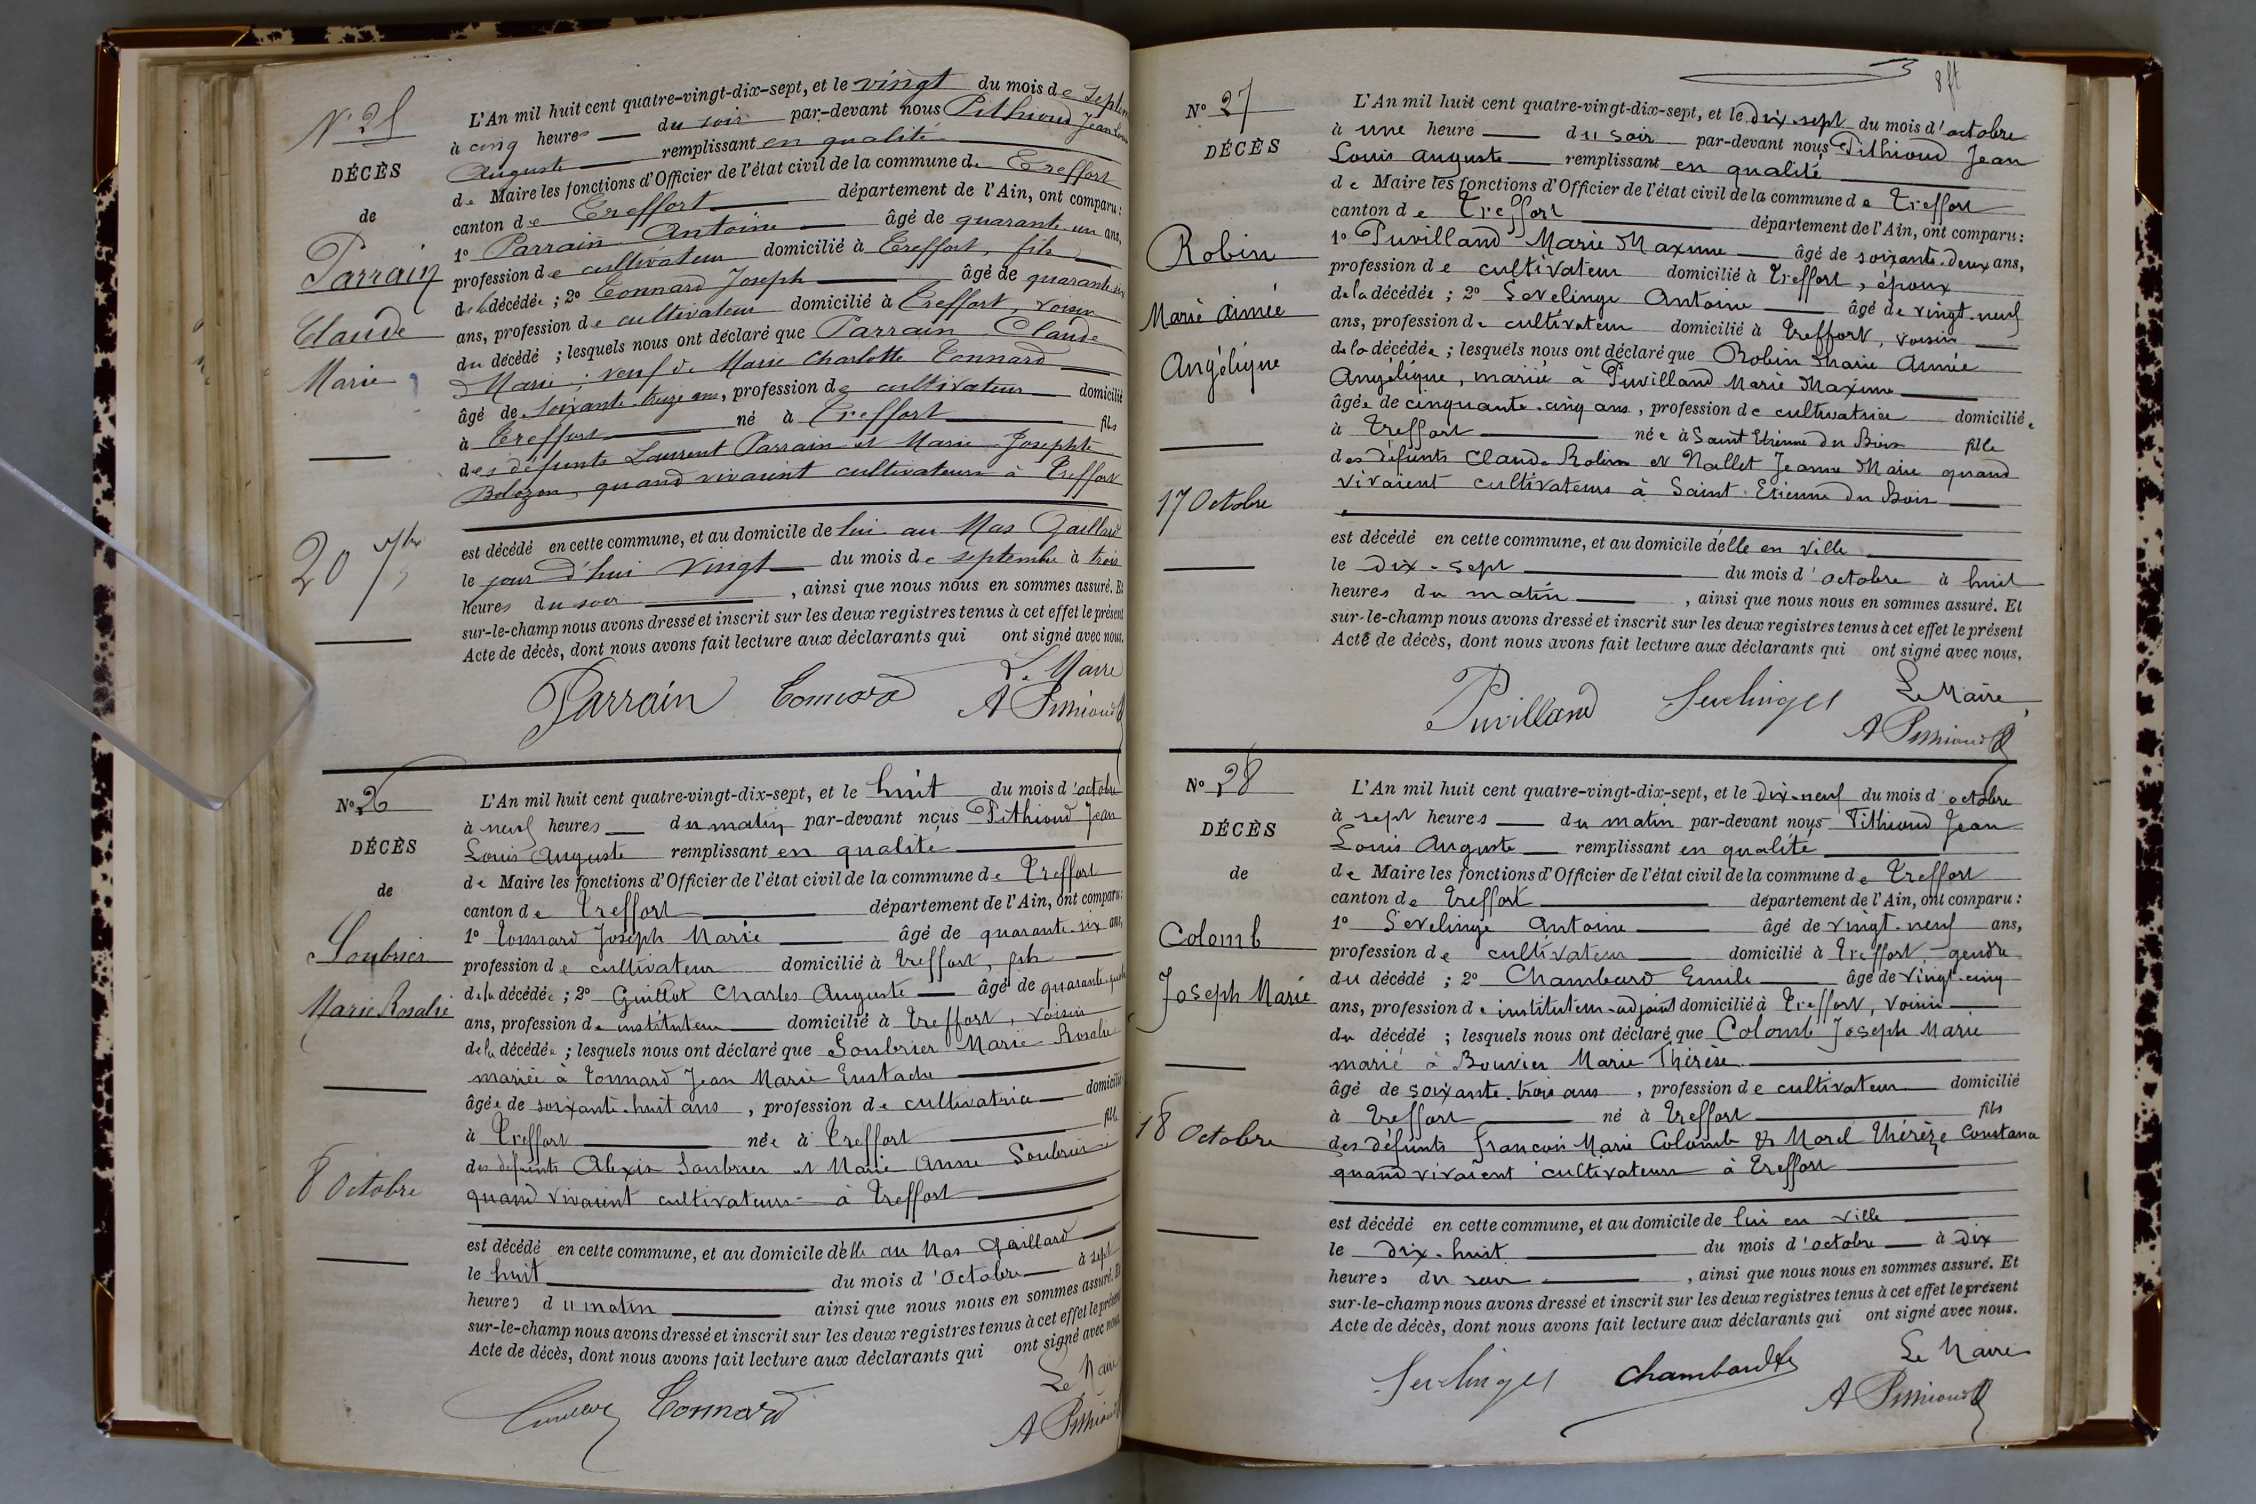 N° 25
DÉCÈS
de
Parrain
Claude
Marie
20 7bre
L'An mil huit cent quatre-vingt-dix-sept, et le vingt du mois de Septem
à cinq heures du soir par-devant nous Pithioud Jean Louis
Auguste remplissant en qualité
de Maire les fonctions d'Officier de l'état civil de la commune de Treffort
canton de Treffort département de l'Ain, ont comparu :
1° Parrain Antoine âgé de quarante-un ans,
profession de cultivateur domicilié à Treffort, fils
de la décédée ; 2° Tonnard Joseph âgé de quarante-six
ans, profession de cultivateur domicilié à Treffort, voisin
du décédé ; lesquels nous ont déclaré que Parrain Claude
Marie, veuf de Marie Charlotte Tonnard
âgé de soixante-treize ans, profession de cultivateur domicilié
à Treffort né à Treffort fils
des défunts Laurent Parrain et Marie Josephte
Bolozon, quand vivaient cultivateurs à Treffort
est décédé en cette commune, et au domicile de lui au Mas Gaillard
le jour d'hui vingt du mois de septembre à trois
heures du soir, ainsi que nous nous en sommes assuré. Et
sur-le-champ nous avons dressé et inscrit sur les deux registres tenus à cet effet le présent
Acte de décès, dont nous avons fait lecture aux déclarants qui ont signé avec nous.
Parrain Tonnard Le Maire
A Pithioud
N° 26
DÉCÈS
de
Soubrier
Marie Rosalie
8 Octobre
L'An mil huit cent quatre-vingt-dix-sept, et le huit du mois d'octobre
à neuf heures du matin par-devant nous Pithioud Jean
Louis Auguste remplissant en qualité
de Maire les fonctions d'Officier de l'état civil de la commune de Treffort
canton de Treffort département de l'Ain, ont comparu :
1° Tonnard Joseph Marie âgé de quarante-six ans,
profession de cultivateur domicilié à Treffort, fils
de la décédée ; 2° Guillot Charles Auguste âgé de quarante
ans, profession de instituteur domicilié à Treffort, voisin
de la décédée ; lesquels nous ont déclaré que Soubrier Marie Rosalie
mariée à Tonnard Jean Marie Eustache
âgée de soixante-huit ans, profession de cultivatrice domicilié
à Treffort née à Treffort fille
des défunts Alexis Soubrier et Marie Anne Soubrier
quand vivaient cultivateurs à Treffort
est décédé en cette commune, et au domicile d'elle au Mas Gaillard
le huit du mois d'Octobre à sept
heures du matin ainsi que nous nous en sommes assuré. Et
sur-le-champ nous avons dressé et inscrit sur les deux registres tenus à cet effet le présent
Acte de décès, dont nous avons fait lecture aux déclarants qui ont signé avec nous.
Tonnard Le Maire
A Pithioud
8 ft
N° 27
DÉCÈS
Robin
Marie Aimée
Angélique
17 Octobre
L'An mil huit cent quatre-vingt-dix-sept, et le dix-sept du mois d'octobre
à une heure du soir par-devant nous Pithioud Jean
Louis Auguste remplissant en qualité
de Maire les fonctions d'Officier de l'état civil de la commune de Treffort
canton de Treffort département de l'Ain, ont comparu :
1° Puvilland Marie Maxime âgé de soixante-deux ans,
profession de cultivateur domicilié à Treffort, époux
de la décédée ; 2° Sevelinge Antoine âgé de vingt-neuf
ans, profession de cultivateur domicilié à Treffort, voisin
de la décédée ; lesquels nous ont déclaré que Robin Marie Aimée
Angélique, mariée à Puvilland Marie Maxime
âgée de cinquante-cinq ans, profession de cultivatrice domiciliée
à Treffort née à Saint Etienne du Bois fille
des défunts Claude Robin et Nallet Jeanne Marie quand
vivaient cultivateurs à Saint-Etienne du Bois
est décédé en cette commune, et au domicile d'elle en ville
le dix-sept du mois d'octobre à huit
heures du matin, ainsi que nous nous en sommes assuré. Et
sur-le-champ nous avons dressé et inscrit sur les deux registres tenus à cet effet le présent
Acte de décès, dont nous avons fait lecture aux déclarants qui ont signé avec nous.
Puvilland Sevelinges Le Maire
A Pithioud
N° 28
DÉCÈS
de
Colomb
Joseph Marie
18 Octobre
L'An mil huit cent quatre-vingt-dix-sept, et le dix-neuf du mois d'octobre
à sept heures du matin par-devant nous Pithioud Jean
Louis Auguste remplissant en qualité
de Maire les fonctions d'Officier de l'état civil de la commune de Treffort
canton de Treffort département de l'Ain, ont comparu :
1° Sevelinge Antoine âgé de vingt-neuf ans,
profession de cultivateur domicilié à Treffort, gendre
du décédé ; 2° Chambard Emile âgé de vingt-cinq
ans, profession de instituteur-adjoint domicilié à Treffort, voisin
du décédé ; lesquels nous ont déclaré que Colomb Joseph Marie
marié à Bouvier Marie Thérèse
âgé de soixante-trois ans, profession de cultivateur domicilié
à Treffort né à Treffort fils
des défunts François Marie Colomb & Morel Thérèze Constance
quand vivaient cultivateurs à Treffort
est décédé en cette commune, et au domicile de lui en ville
le dix-huit du mois d'octobre à dix
heures du soir, ainsi que nous nous en sommes assuré. Et
sur-le-champ nous avons dressé et inscrit sur les deux registres tenus à cet effet le présent
Acte de décès, dont nous avons fait lecture aux déclarants qui ont signé avec nous.
Sevelinges Chambard Le Maire
A Pithioud